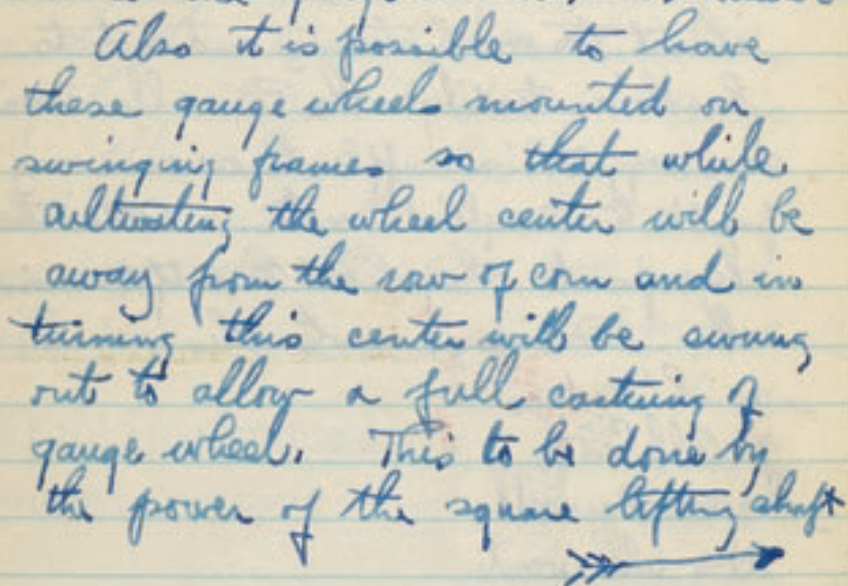 Also it is possible to have
these gauge wheels mounted on
swinging frames so that while
cultivating the wheel center will be
away from the row of corn and in
turning this center will be swung
out to allow a full castering of
gauge wheel. This to be done by
the power of the square lifting shaft